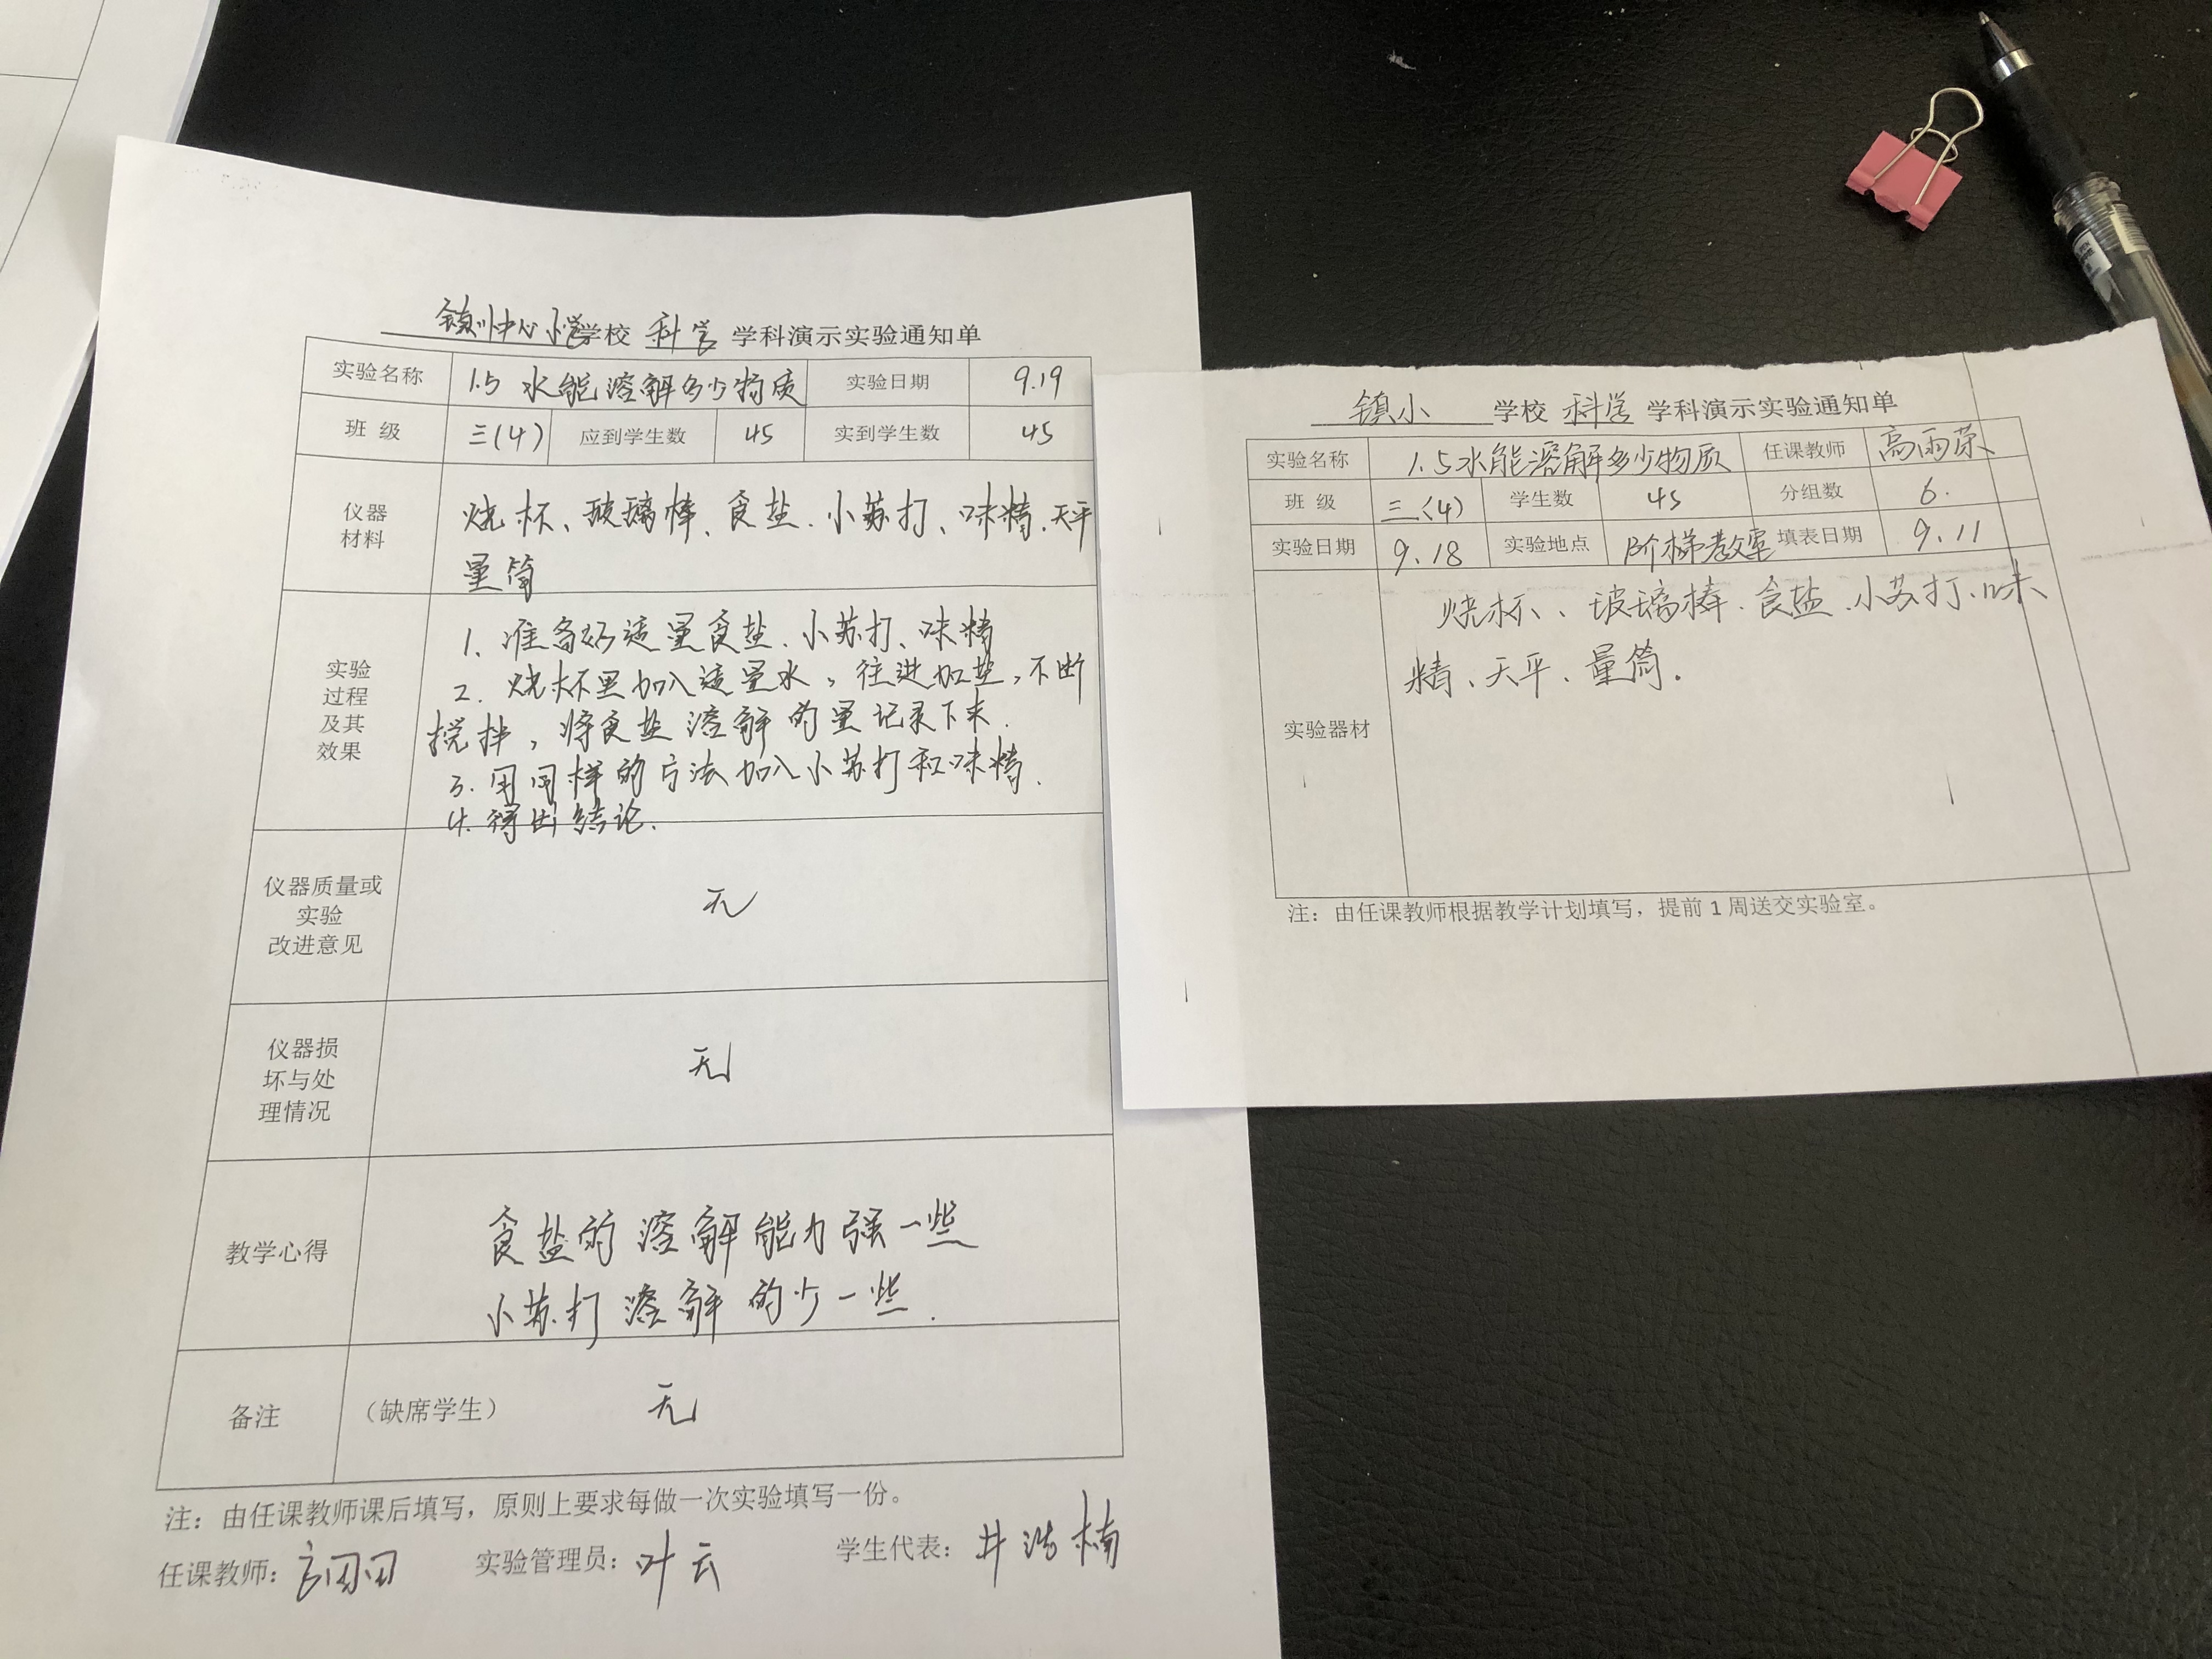 镇川中心小学学校 科学 学科演示实验通知单
实验名称 1.5 水能溶解多少物质 实验日期 9.19
班 级 三(4) 应到学生数 45 实到学生数 45
仪器
材料
烧杯、玻璃棒、食盐、小苏打、味精、天平
量筒
实验
过程
及其
效果
1. 准备好适量食盐、小苏打、味精
2. 烧杯里加入适量水，往进加盐，不断
搅拌，将食盐溶解的量记录下来.
3. 用同样的方法加入小苏打和味精.
4. 得出结论.
仪器质量或
实验
改进意见
无
仪器损
坏与处
理情况
无
教学心得
食盐的溶解能力强一些
小苏打溶解的少一些.
备注 （缺席学生） 无
注：由任课教师课后填写，原则上要求每做一次实验填写一份。
任课教师： 实验管理员：叶云 学生代表：井浩楠
镇小 学校 科学 学科演示实验通知单
实验名称 1.5水能溶解多少物质 任课教师 高雨荣
班 级 三(4) 学生数 45 分组数 6.
实验日期 9.18 实验地点 阶梯教室 填表日期 9.11
实验器材
烧杯、玻璃棒、食盐、小苏打、味
精、天平、量筒.
注：由任课教师根据教学计划填写，提前1周送交实验室。